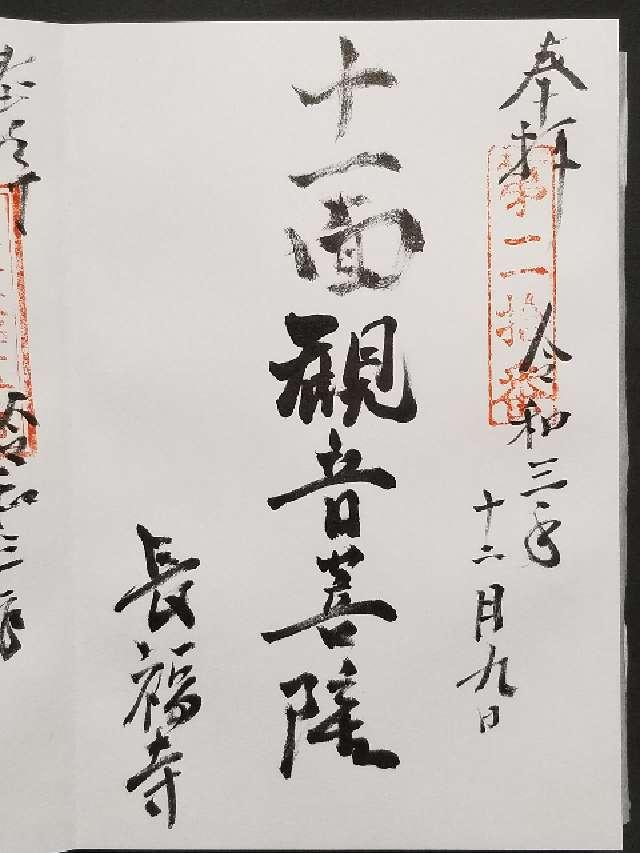 奉拝
第二拾番
令和三年
十二月九日
十一面観音菩薩
長福寺
令和三年